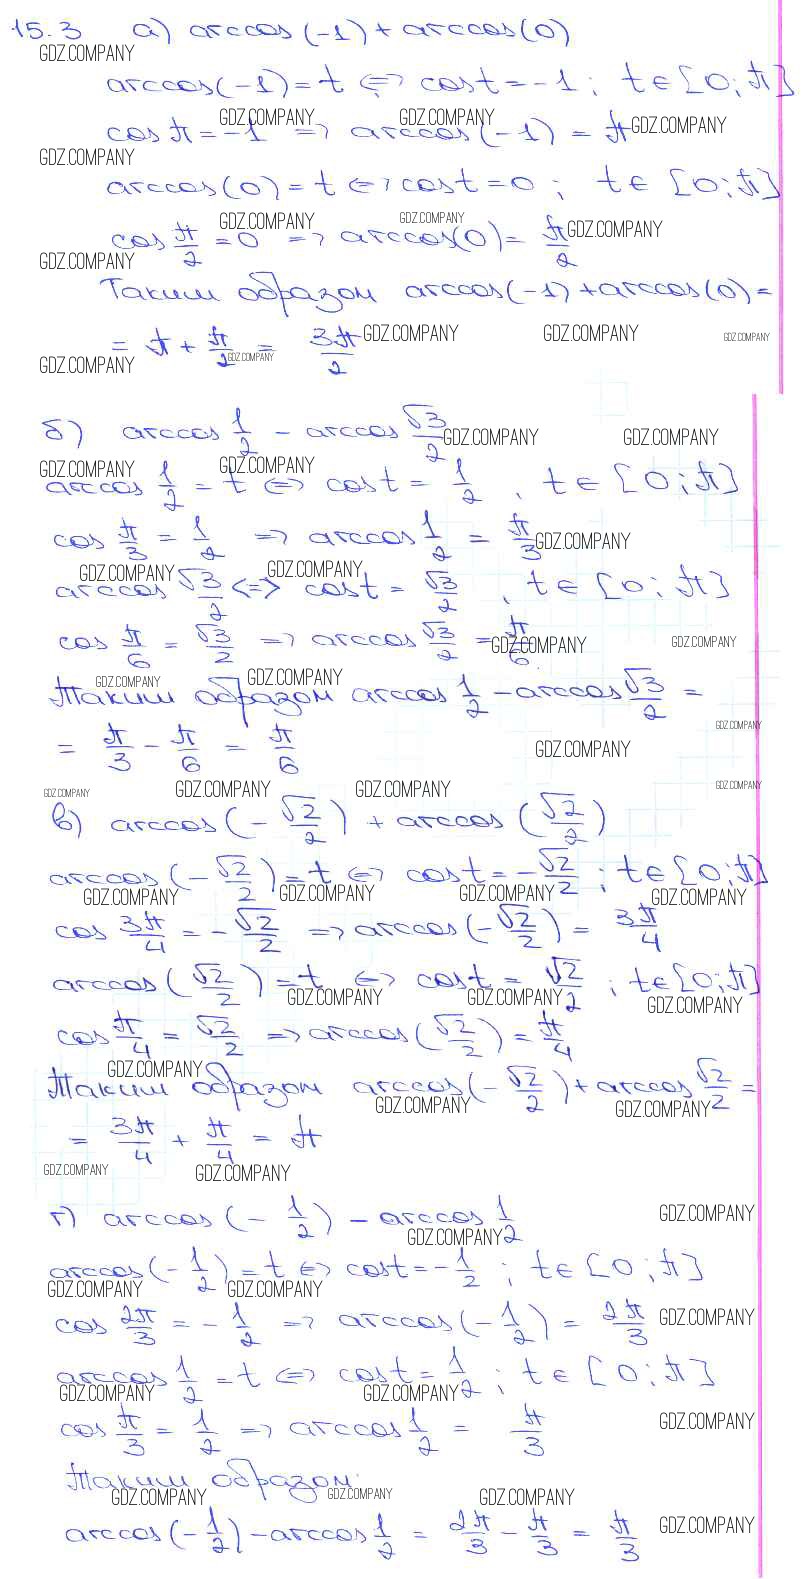 15.3 а) arccos(-1) + arccos(0)
GDZ.COMPANY
arccos(-1) = t <=> cos t = -1; t ∈ [0; π]
GDZ.COMPANY GDZ.COMPANY
cos π = -1 => arccos(-1) = π GDZ.COMPANY
GDZ.COMPANY
arccos(0) = t <=> cos t = 0; t ∈ [0; π]
GDZ.COMPANY GDZ.COMPANY
cos π/2 = 0 => arccos(0) = π/2 GDZ.COMPANY
GDZ.COMPANY
Таким образом arccos(-1) + arccos(0) =
= π + π/2 = 3π/2 GDZ.COMPANY GDZ.COMPANY GDZ.COMPANY
GDZ.COMPANY GDZ.COMPANY
б) arccos 1/2 - arccos √3/2 GDZ.COMPANY GDZ.COMPANY
GDZ.COMPANY GDZ.COMPANY
arccos 1/2 = t <=> cos t = 1/2, t ∈ [0; π]
cos π/3 = 1/2 => arccos 1/2 = π/3 GDZ.COMPANY
GDZ.COMPANY GDZ.COMPANY
arccos √3/2 <=> cos t = √3/2, t ∈ [0; π]
cos π/6 = √3/2 => arccos √3/2 = π/6 GDZ.COMPANY GDZ.COMPANY
GDZ.COMPANY GDZ.COMPANY
Таким образом arccos 1/2 - arccos √3/2 =
GDZ.COMPANY
= π/3 - π/6 = π/6 GDZ.COMPANY
GDZ.COMPANY GDZ.COMPANY GDZ.COMPANY GDZ.COMPANY
в) arccos(-√2/2) + arccos(√2/2)
arccos(-√2/2) = t <=> cos t = -√2/2; t ∈ [0; π]
GDZ.COMPANY GDZ.COMPANY GDZ.COMPANY GDZ.COMPANY
cos 3π/4 = -√2/2 => arccos(-√2/2) = 3π/4
arccos(√2/2) = t <=> cos t = √2/2; t ∈ [0; π]
GDZ.COMPANY GDZ.COMPANY GDZ.COMPANY
cos π/4 = √2/2 => arccos(√2/2) = π/4
GDZ.COMPANY
Таким образом arccos(-√2/2) + arccos √2/2 =
GDZ.COMPANY GDZ.COMPANY
= 3π/4 + π/4 = π
GDZ.COMPANY GDZ.COMPANY
г) arccos(-1/2) - arccos 1/2 GDZ.COMPANY
GDZ.COMPANY
arccos(-1/2) = t <=> cos t = -1/2; t ∈ [0; π]
GDZ.COMPANY GDZ.COMPANY
cos 2π/3 = -1/2 => arccos(-1/2) = 2π/3 GDZ.COMPANY
arccos 1/2 = t <=> cos t = 1/2; t ∈ [0; π]
GDZ.COMPANY GDZ.COMPANY
cos π/3 = 1/2 => arccos 1/2 = π/3 GDZ.COMPANY
Таким образом:
GDZ.COMPANY GDZ.COMPANY GDZ.COMPANY
arccos(-1/2) - arccos 1/2 = 2π/3 - π/3 = π/3 GDZ.COMPANY